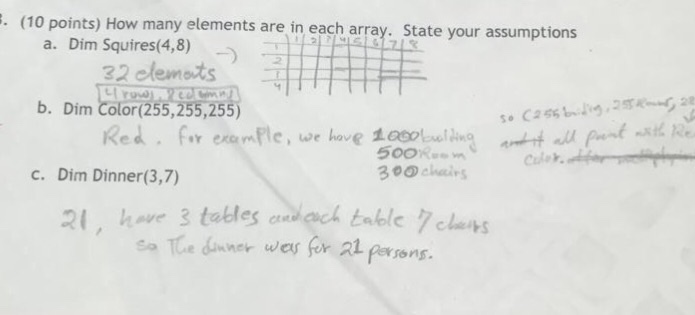 3. (10 points) How many elements are in each array. State your assumptions
a. Dim Squires(4,8)
1 2 3 4 5 6 7 8
1
2
4
32 elements
4 rows, 8 columns
b. Dim Color(255,255,255)
Red. for example, we have 1000 building
500 Room
300 chairs
so (255 building, 255
and it all paint with Re
Color.
c. Dim Dinner(3,7)
21, have 3 tables and each table 7 chairs
so The dinner was for 21 persons.